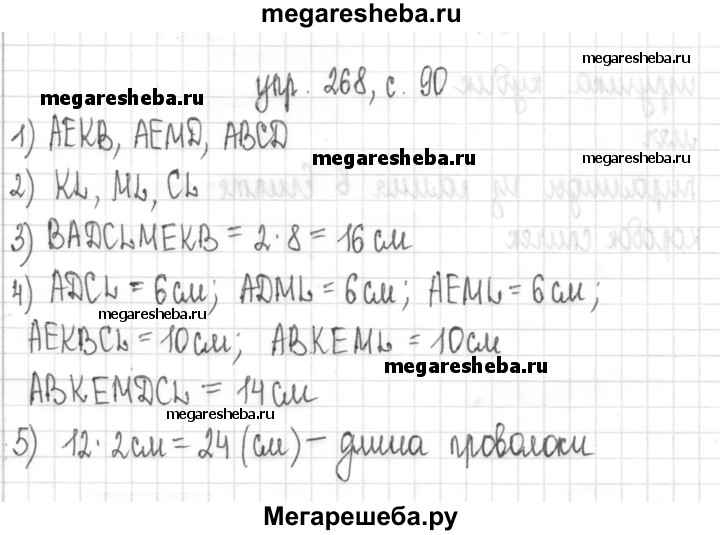 megaresheba.ru
megaresheba.ru
упр. 268, с. 90
megaresheba.ru
1) AEKB, AEMD, ABCD
megaresheba.ru
megaresheba.ru
2) KL, ML, CL
3) BADCLMEKB = 2·8 = 16 см
4) ADCL = 6 см; ADML = 6 см; AEML = 6 см;
megaresheba.ru
AEKBCL = 10 см; ABKEML = 10 см
megaresheba.ru
ABKEMDCL = 14 см
megaresheba.ru
5) 12·2 см = 24 (см) – длина проволоки
Мегарешеба.ру